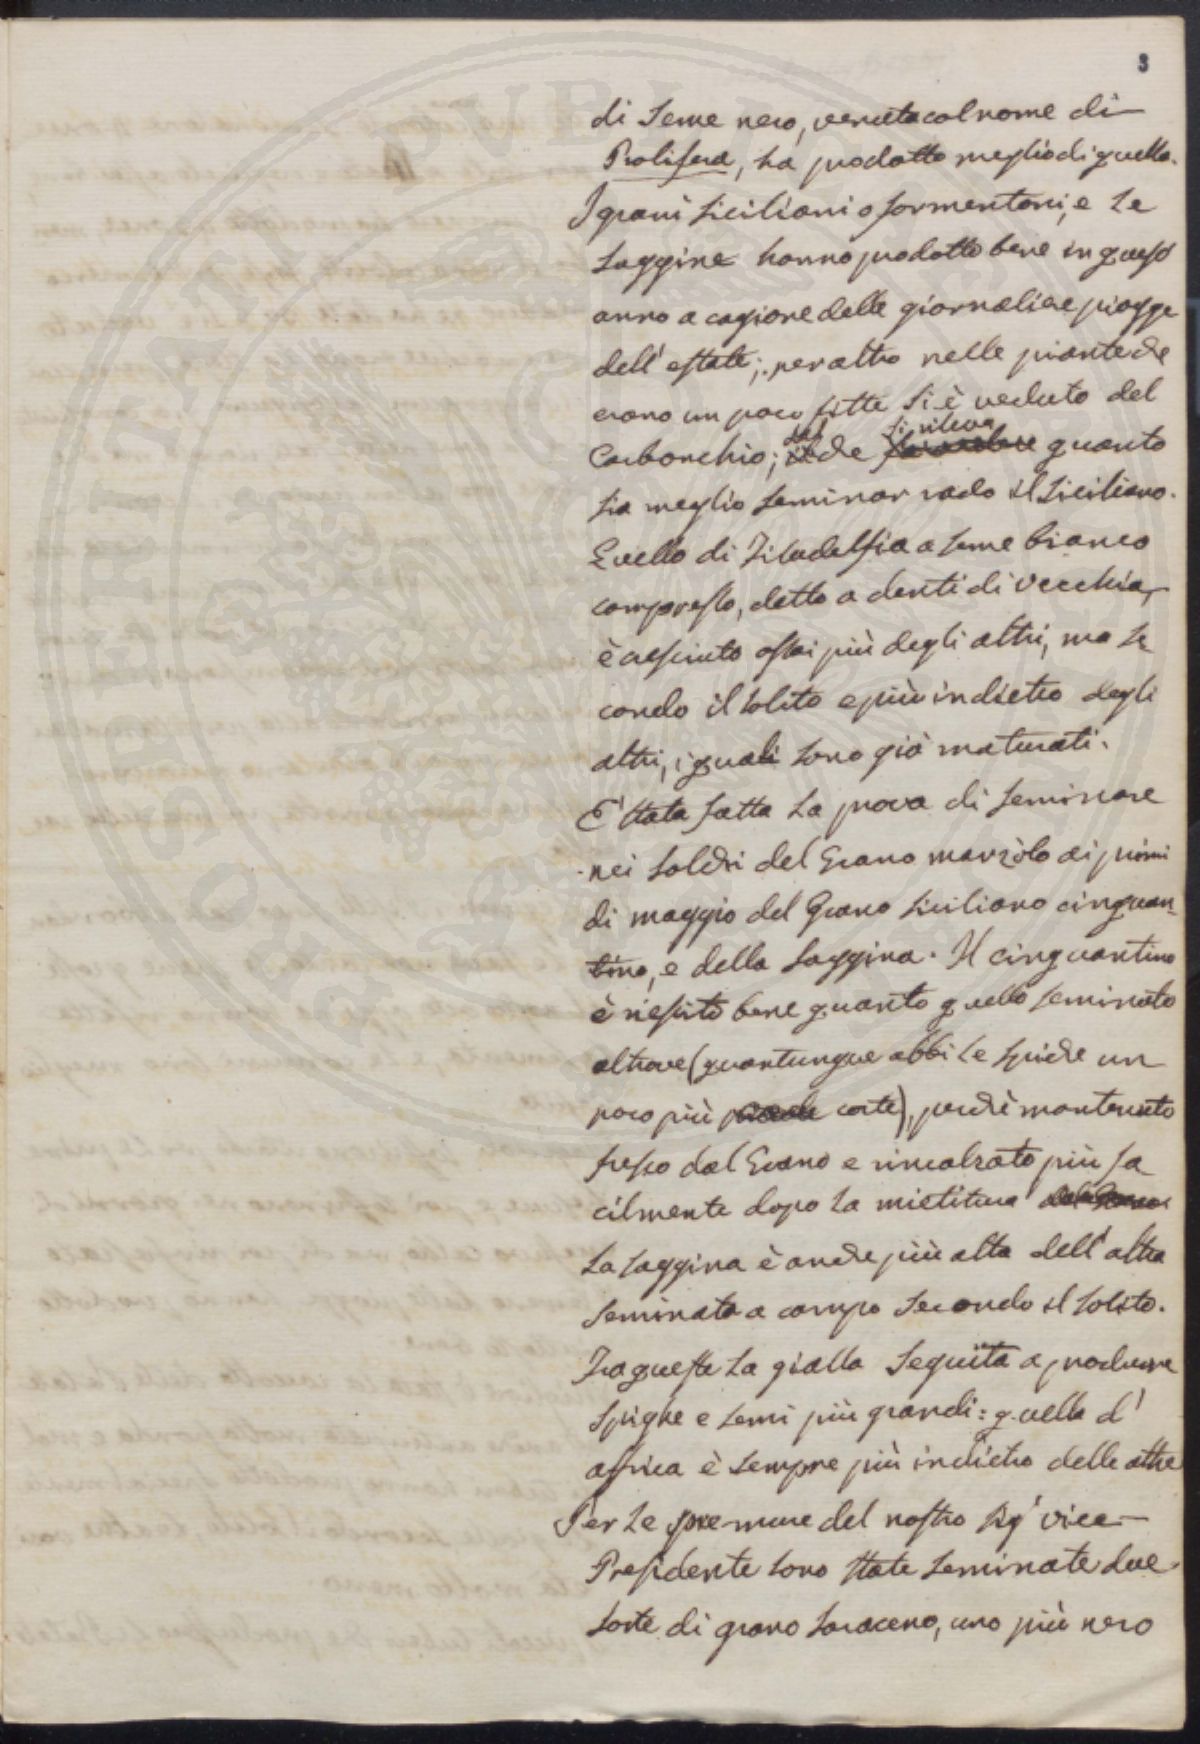 3
di Seme nero, venuta col nome di
Prolifera, ha prodotto meglio di quello.
I grani Siciliani o formentoni, e le
Saggine hanno prodotto bene in questo
anno a cagione delle giornaliere piogge
dell'estate; per altro nelle piante che
erano un poco fitte si è veduto del
Carbonchio; dal che si rileva quanto
sia meglio seminar rado il Siciliano.
Quello di Filadelfia a seme bianco
compresso, detto a denti di vecchia,
è cresciuto assai più degli altri, ma se
condo il solito e più indietro degli
altri, i quali sono già maturati.
E' stata fatta la prova di seminare
nei solchi del Grano marzòlo ai primi
di maggio del Grano Siciliano cinquan=
tino, e della Saggina. Il cinquantino
è riescito bene quanto quello seminato
altrove (quantunque abbi le spiche un
poco più corte), perchè mantenuto
fresco dal Grano e rincalzato più fa
cilmente dopo la mietitura
La Saggina è anche più alta dell'altra
Seminata a campo secondo il solito.
Fra queste la gialla seguita a produrre
Spighe e semi più grandi: quella d'
affrica è sempre più indietro delle altre
Per le premure del nostro Sig.r vice-
Presidente sono state seminate due
sorte di grano saraceno, uno più nero
PVBLICAE
PROSPERITATI